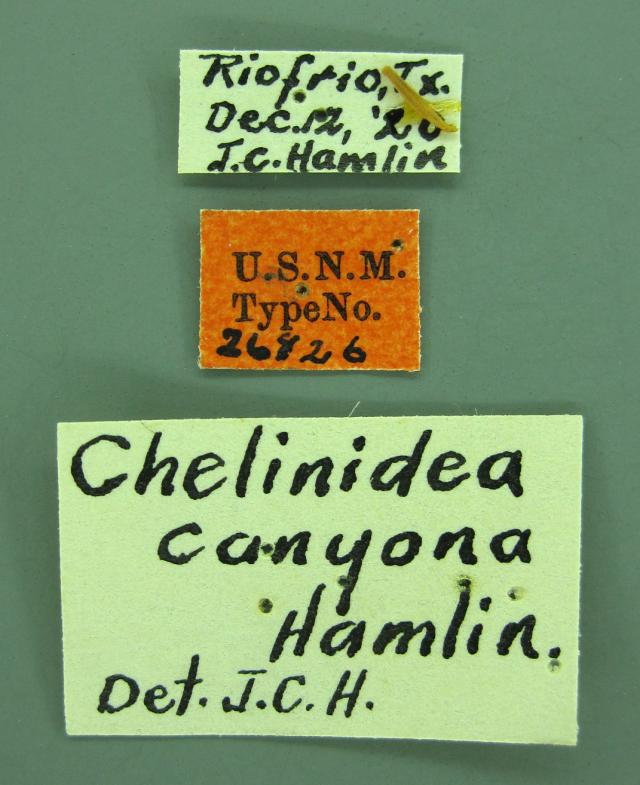 Riofrio, Tx.
Dec. 12,
J.C. Hamlin
U.S.N.M.
Type No.
26826
Chelinidea
canyona
Hamlin.
Det. J.C.H.